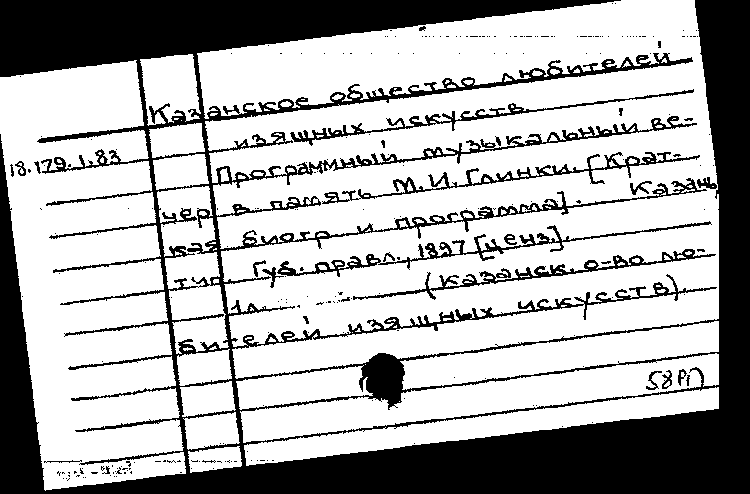 Казанское общество любителей
изящных искусств.
18.179.1.83
Программный музыкальный ве-
чер в память М.И. Глинки. [Крат-
кая биогр и программа]. Казань,
тип. Губ. правл., 1897 [ценз.].
1л. (Казанск. о-во лю-
бителей изящных искусств).